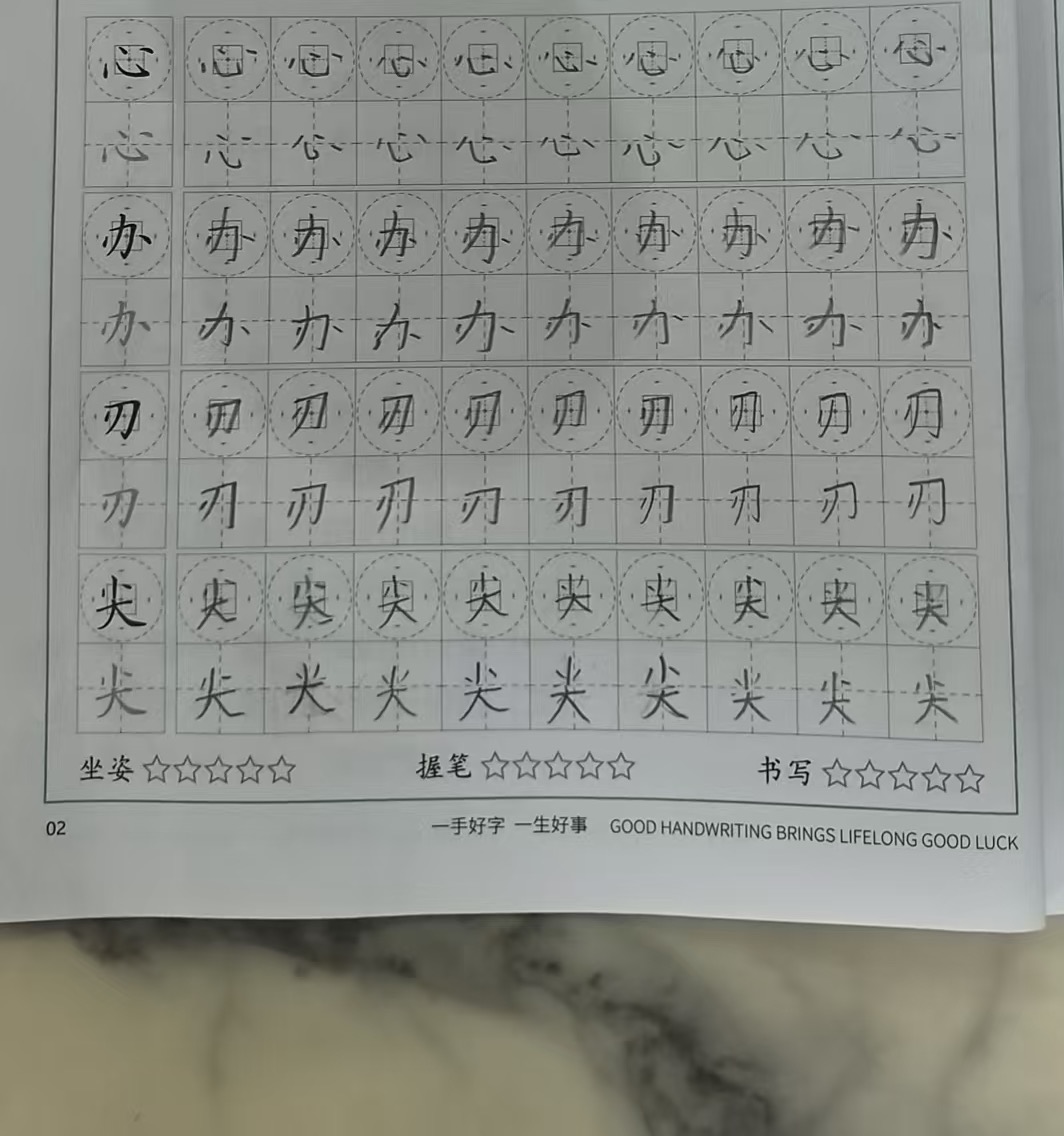 心 心 心 心 心 心 心 心 心 心
心 心 心 心 心 心 心 心 心 心
办 办 办 办 办 办 办 办 办 办
办 办 办 办 办 办 办 办 办 办
刃 刃 刃 刃 刃 刃 刃 刃 刃 刃
刃 刃 刃 刃 刃 刃 刃 刃 刃 刃
尖 尖 尖 尖 尖 尖 尖 尖 尖 尖
尖 尖 尖 尖 尖 尖 尖 尖 尖 尖
坐姿 ☆☆☆☆☆ 握笔 ☆☆☆☆☆ 书写 ☆☆☆☆☆
02 一手好字 一生好事 GOOD HANDWRITING BRINGS LIFELONG GOOD LUCK